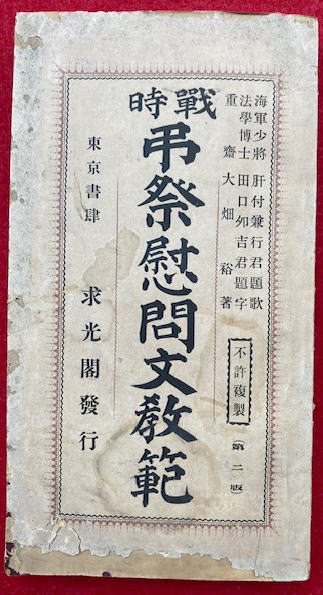 海軍少將 肝付兼行君題歌
法學博士 田口夘吉君題字
重齋 大畑 裕著
不許複製
(第二版)
時戰
弔祭慰問文教範
東京書肆 求光閣發行